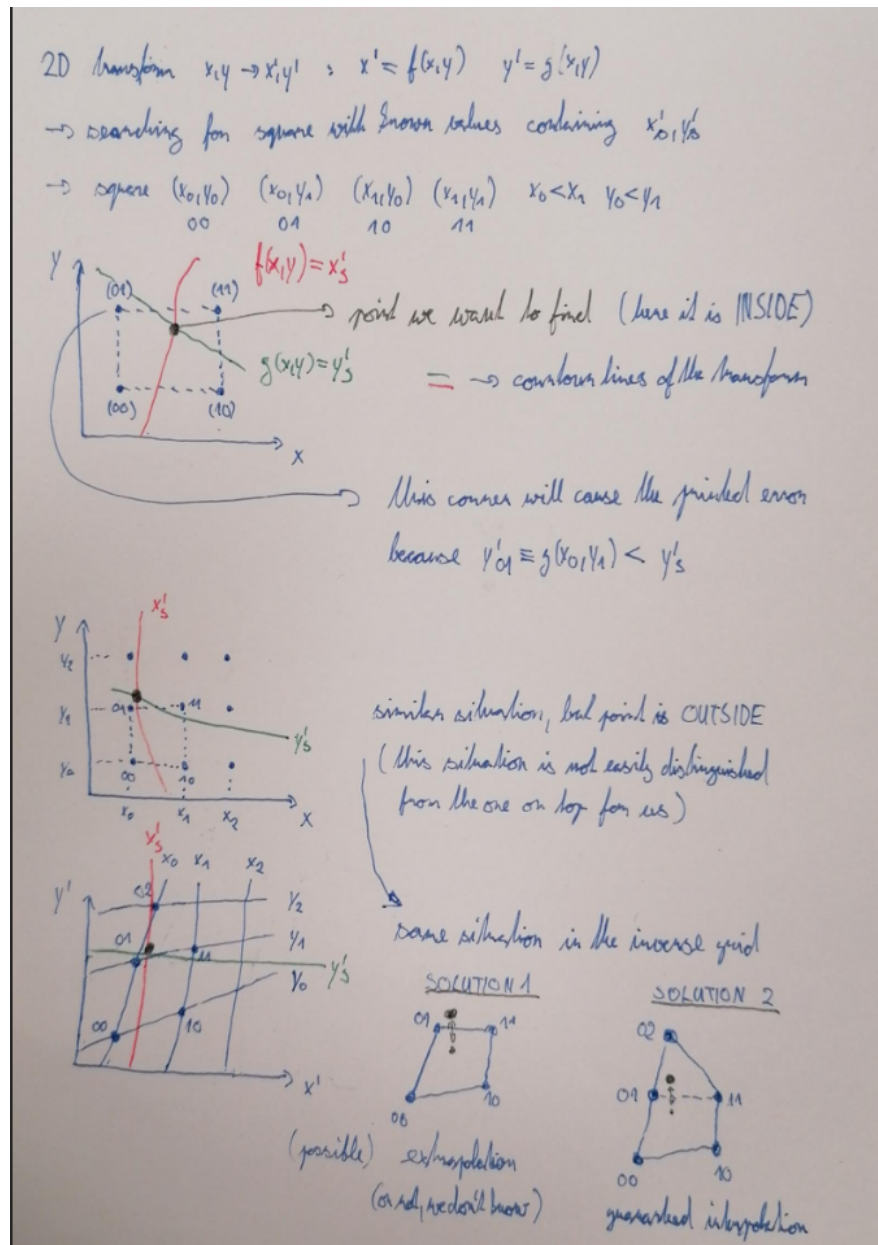 2D transform x,y → x',y' : x' = f(x,y) y' = g(x,y)
→ searching for square with known values containing x's, y's
→ square (x0,y0) (x0,y1) (x1,y0) (x1,y1) x0<x1 y0<y1
00 01 10 11
Y
f(x,y) = x's
(01) (11)
→ point we want to find (here it is INSIDE)
g(x,y) = y's
= → countour lines of the transform
(00) (10)
X
this corner will cause the printed error
because y'01 ≡ g(x0,y1) < y's
x's
Y
y2
y1 01 11
y's
y0 00 10
x0 x1 x2 X
similar situation, but point is OUTSIDE
(this situation is not easily distinguished
from the one on top for us)
x's x0 x1 x2
Y' 02 y2
01 y1
11 y's
y0
00 10
X'
same situation in the inverse grid
SOLUTION 1
01 11
00 10
(possible) extrapolation
(or not, we don't know)
SOLUTION 2
02
01 11
00 10
guaranteed interpolation